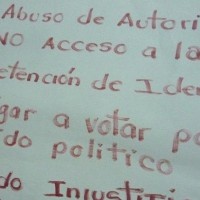 Abuso de Autori
NO Acceso a la
etención de Ider
gar a votar po
ido politico
do Injustici